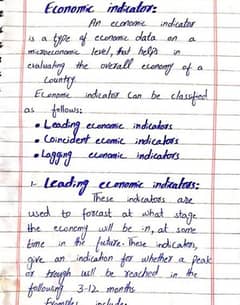 Economic indicator:
An economic indicator
is a type of economic data on a
macroeconomic level, that helps in
evaluating the overall economy of a
country.
Economic indicator can be classified
as follows:
• Leading economic indicators
• Coincident economic indicators
• Lagging economic indicators
1- Leading economic indicators:
These indicators are
used to forcast at what stage
the economy will be in, at some
time in the future. These indicators,
give an indication for whether a peak
or trough will be reached in the
following 3-12 months
Examples include